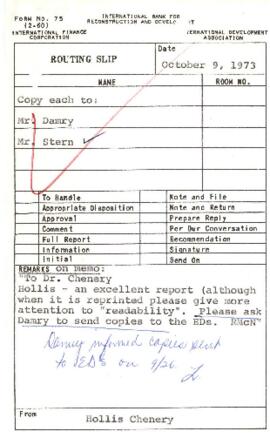 FORM NO. 75
(2-60)
INTERNATIONAL BANK FOR
RECONSTRUCTION AND DEVELO T
INTERNATIONAL FINANCE
CORPORATION
ERNATIONAL DEVELOPMENT
ASSOCIATION
ROUTING SLIP
Date
October 9, 1973
NAME
ROOM NO.
Copy each to:
Mr. Damry
Mr. Stern
To Handle
Note and File
Appropriate Disposition
Note and Return
Approval
Prepare Reply
Comment
Per Our Conversation
Full Report
Recommendation
Information
Signature
Initial
Send On
REMARKS on Memo:
"To Dr. Chenery
Hollis - an excellent report (although
when it is reprinted please give more
attention to "readability". Please ask
Damry to send copies to the EDs. RMcN"
Damry informed copies sent
to EDs on 9/26.
From
Hollis Chenery